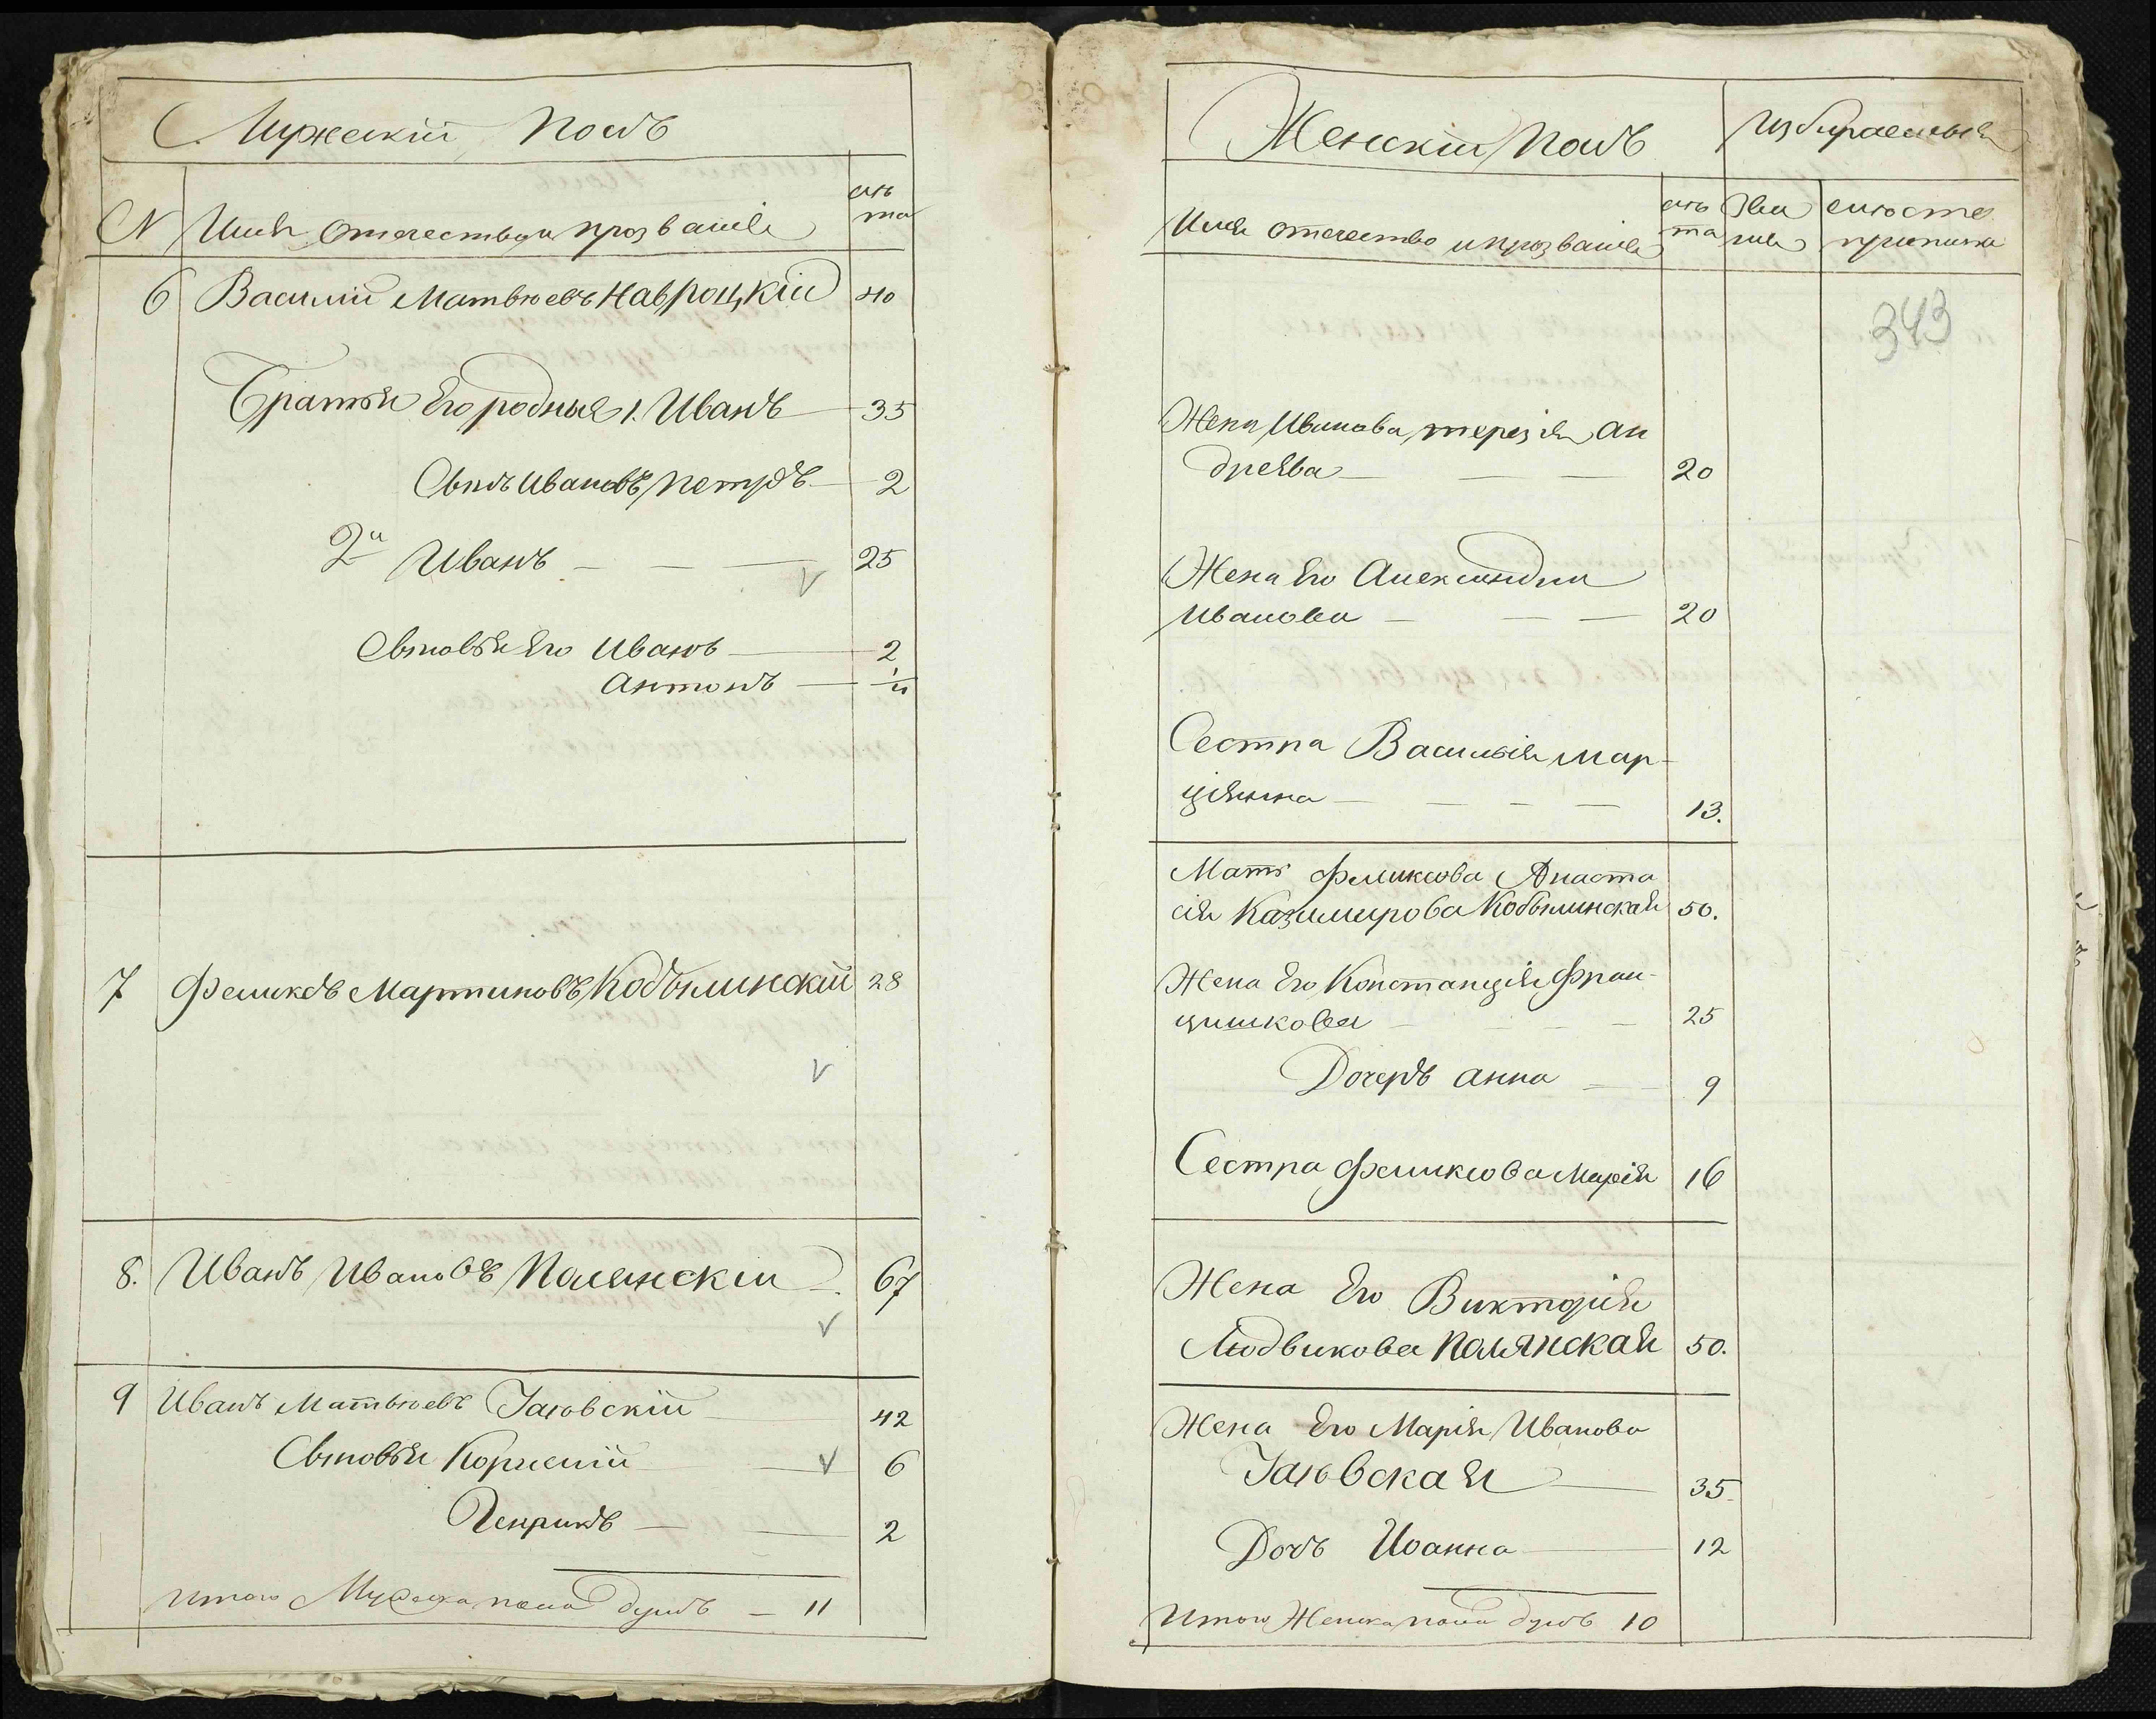 Мужескій Полъ
лѣ
та
N Имя Отечество и прозваніе
6 Василій Матвѣевъ Навроцкій 40
Братья Его родныя 1. Иванъ 35
Сынъ Ивановъ Петръ 2
2й Иванъ 25
Сыновья Его Иванъ 2
Антонъ
7 Феликсъ Мартиновъ Кобылинскій 28
8. Иванъ Ивановъ Полянскій 67
9 Иванъ Матвѣевъ 42
Сыновья Корнелій 6
Генрикъ 2
Итого пола душъ 11
Женскій Полъ
лѣ
та
Имя отечество и прозваніе
343
Жена Иванова терезія Ан
дреева 20
Жена Его Александра
Иванова 20
Сестра Василія мар-
цѣянна 13.
Мать Феликсова Анаста
сія Казимирова Кобылинская 50.
Жена Его Констанція Фран-
цишкова 25
Дочеръ анна 9
Сестра Феликсова Марія 16
Жена Его Викторія
Людвикова Полянская 50.
Жена Его Марія Иванова
35.
Дочь Иоанна 12
Итого Женска пола душъ 10